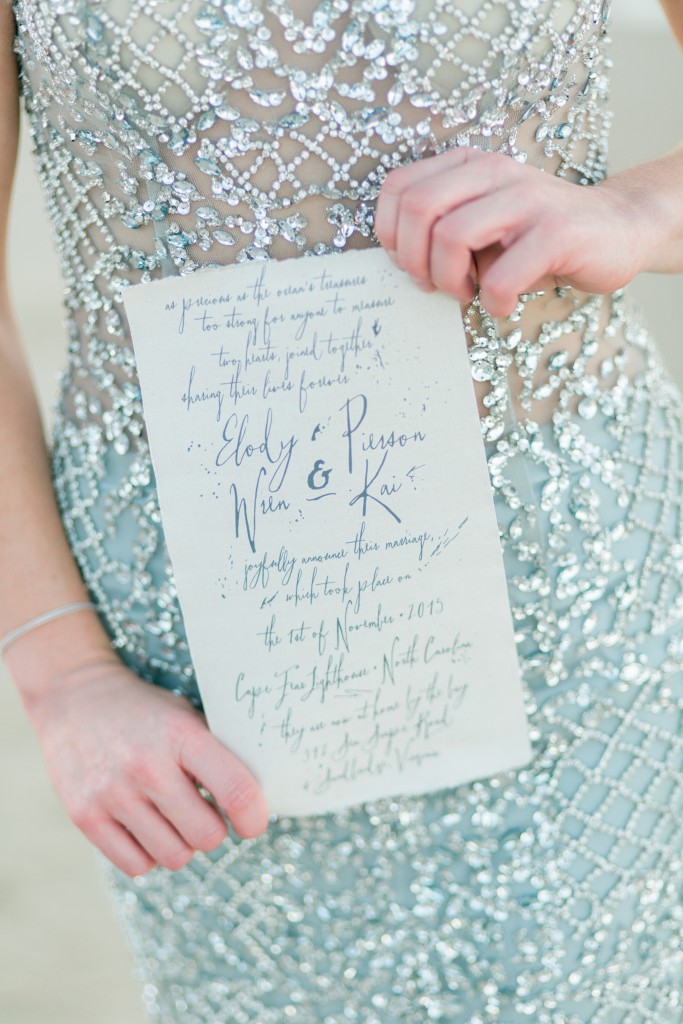 as precious as the ocean's treasures
too strong for anyone to measure
two hearts, joined together
sharing their lives forever
Elody & Pierson
Wren Kai
joyfully announce their marriage,
which took place on
the 1st of November • 2015
Cape Fear Lighthouse • North Carolina
they are now at home by the bay
Road